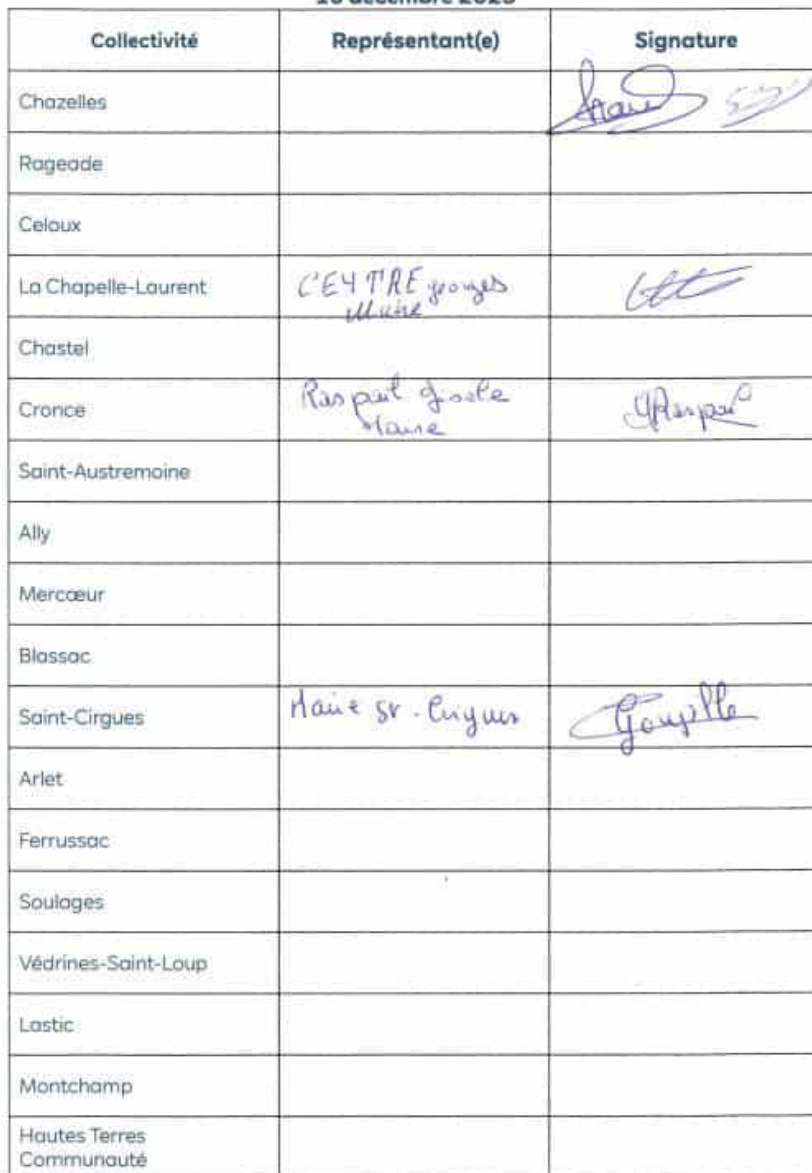 Collectivité Représentant(e) Signature
Chazelles
Rageade
Celoux
La Chapelle-Laurent CEYTRE georges
Maire
Chastel
Cronce Raspail Gisele
Maire
Saint-Austremoine
Ally
Mercœur
Blassac
Saint-Cirgues Maire St-Cirgues Goupille
Arlet
Ferrussac
Soulages
Védrines-Saint-Loup
Lastic
Montchamp
Hautes Terres
Communauté